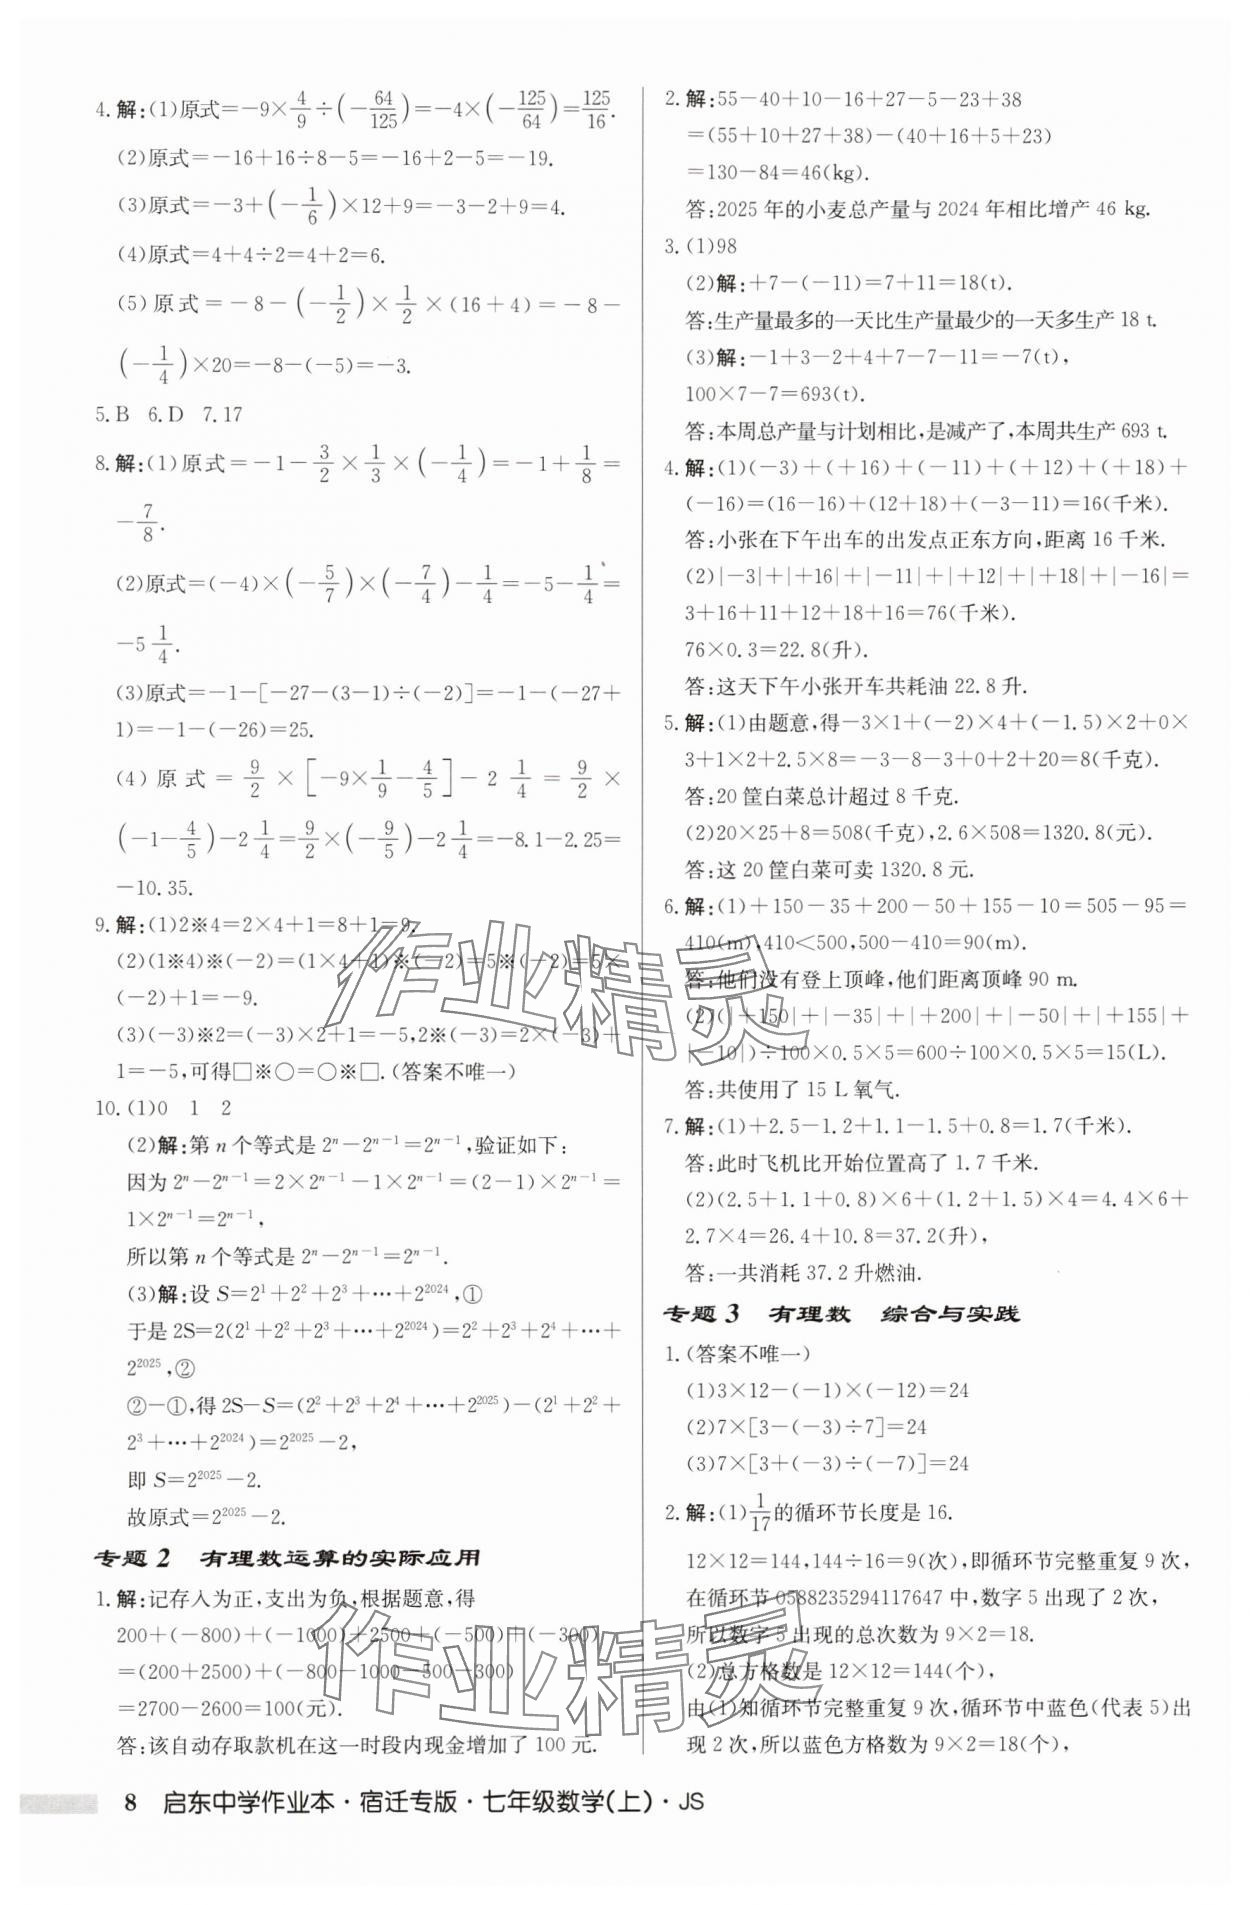 4.解:(1)原式=-9×4/9÷(-64/125)=-4×(-125/64)=125/16.
(2)原式=-16+16÷8-5=-16+2-5=-19.
(3)原式=-3+(-1/6)×12+9=-3-2+9=4.
(4)原式=4+4÷2=4+2=6.
(5)原式=-8-(-1/2)×1/2×(16+4)=-8-
(-1/4)×20=-8-(-5)=-3.
5.B 6.D 7.17
8.解:(1)原式=-1-3/2×1/3×(-1/4)=-1+1/8=
-7/8.
(2)原式=(-4)×(-5/7)×(-7/4)-1/4=-5-1/4=
-5 1/4.
(3)原式=-1-[-27-(3-1)÷(-2)]=-1-(-27+
1)=-1-(-26)=25.
(4)原式=9/2×[-9×1/9-4/5]-2 1/4=9/2×
(-1-4/5)-2 1/4=9/2×(-9/5)-2 1/4=-8.1-2.25=
-10.35.
9.解:(1)2※4=2×4+1=8+1=9.
(2)(1※4)※(-2)=(1×4+1)※(-2)=5※(-2)=5×
(-2)+1=-9.
(3)(-3)※2=(-3)×2+1=-5,2※(-3)=2×(-3)+
1=-5,可得□※○=○※□.(答案不唯一)
10.(1)0 1 2
(2)解:第n个等式是2ⁿ-2ⁿ⁻¹=2ⁿ⁻¹,验证如下:
因为2ⁿ-2ⁿ⁻¹=2×2ⁿ⁻¹-1×2ⁿ⁻¹=(2-1)×2ⁿ⁻¹=
1×2ⁿ⁻¹=2ⁿ⁻¹,
所以第n个等式是2ⁿ-2ⁿ⁻¹=2ⁿ⁻¹.
(3)解:设S=2¹+2²+2³+…+2²⁰²⁴,①
于是2S=2(2¹+2²+2³+…+2²⁰²⁴)=2²+2³+2⁴+…+
2²⁰²⁵,②
②-①,得2S-S=(2²+2³+2⁴+…+2²⁰²⁵)-(2¹+2²+
2³+…+2²⁰²⁴)=2²⁰²⁵-2,
即S=2²⁰²⁵-2.
故原式=2²⁰²⁵-2.
专题2 有理数运算的实际应用
1.解:记存入为正,支出为负,根据题意,得
200+(-800)+(-1000)+2500+(-500)+(-300)
=(200+2500)+(-800-1000-500-300)
=2700-2600=100(元).
答:该自动存取款机在这一时段内现金增加了100元.
2.解:55-40+10-16+27-5-23+38
=(55+10+27+38)-(40+16+5+23)
=130-84=46(kg).
答:2025年的小麦总产量与2024年相比增产46 kg.
3.(1)98
(2)解:+7-(-11)=7+11=18(t).
答:生产量最多的一天比生产量最少的一天多生产18 t.
(3)解:-1+3-2+4+7-7-11=-7(t),
100×7-7=693(t).
答:本周总产量与计划相比,是减产了,本周共生产693 t.
4.解:(1)(-3)+(+16)+(-11)+(+12)+(+18)+
(-16)=(16-16)+(12+18)+(-3-11)=16(千米).
答:小张在下午出车的出发点正东方向,距离16千米.
(2)|-3|+|+16|+|-11|+|+12|+|+18|+|-16|=
3+16+11+12+18+16=76(千米).
76×0.3=22.8(升).
答:这天下午小张开车共耗油22.8升.
5.解:(1)由题意,得-3×1+(-2)×4+(-1.5)×2+0×
3+1×2+2.5×8=-3-8-3+0+2+20=8(千克).
答:20筐白菜总计超过8千克.
(2)20×25+8=508(千克),2.6×508=1320.8(元).
答:这20筐白菜可卖1320.8元.
6.解:(1)+150-35+200-50+155-10=505-95=
410(m),410<500,500-410=90(m).
答:他们没有登上顶峰,他们距离顶峰90 m.
(2)(|+150|+|-35|+|+200|+|-50|+|+155|+
|-10|)÷100×0.5×5=600÷100×0.5×5=15(L).
答:共使用了15 L氧气.
7.解:(1)+2.5-1.2+1.1-1.5+0.8=1.7(千米).
答:此时飞机比开始位置高了1.7千米.
(2)(2.5+1.1+0.8)×6+(1.2+1.5)×4=4.4×6+
2.7×4=26.4+10.8=37.2(升),
答:一共消耗37.2升燃油.
专题3 有理数 综合与实践
1.(答案不唯一)
(1)3×12-(-1)×(-12)=24
(2)7×[3-(-3)÷7]=24
(3)7×[3+(-3)÷(-7)]=24
2.解:(1)1/17的循环节长度是16.
12×12=144,144÷16=9(次),即循环节完整重复9次,
在循环节0588235294117647中,数字5出现了2次,
所以数字5出现的总次数为9×2=18.
(2)总方格数是12×12=144(个),
由(1)知循环节完整重复9次,循环节中蓝色(代表5)出
现2次,所以蓝色方格数为9×2=18(个),
8 启东中学作业本·宿迁专版·七年级数学(上)·JS
作业精灵
作业精灵